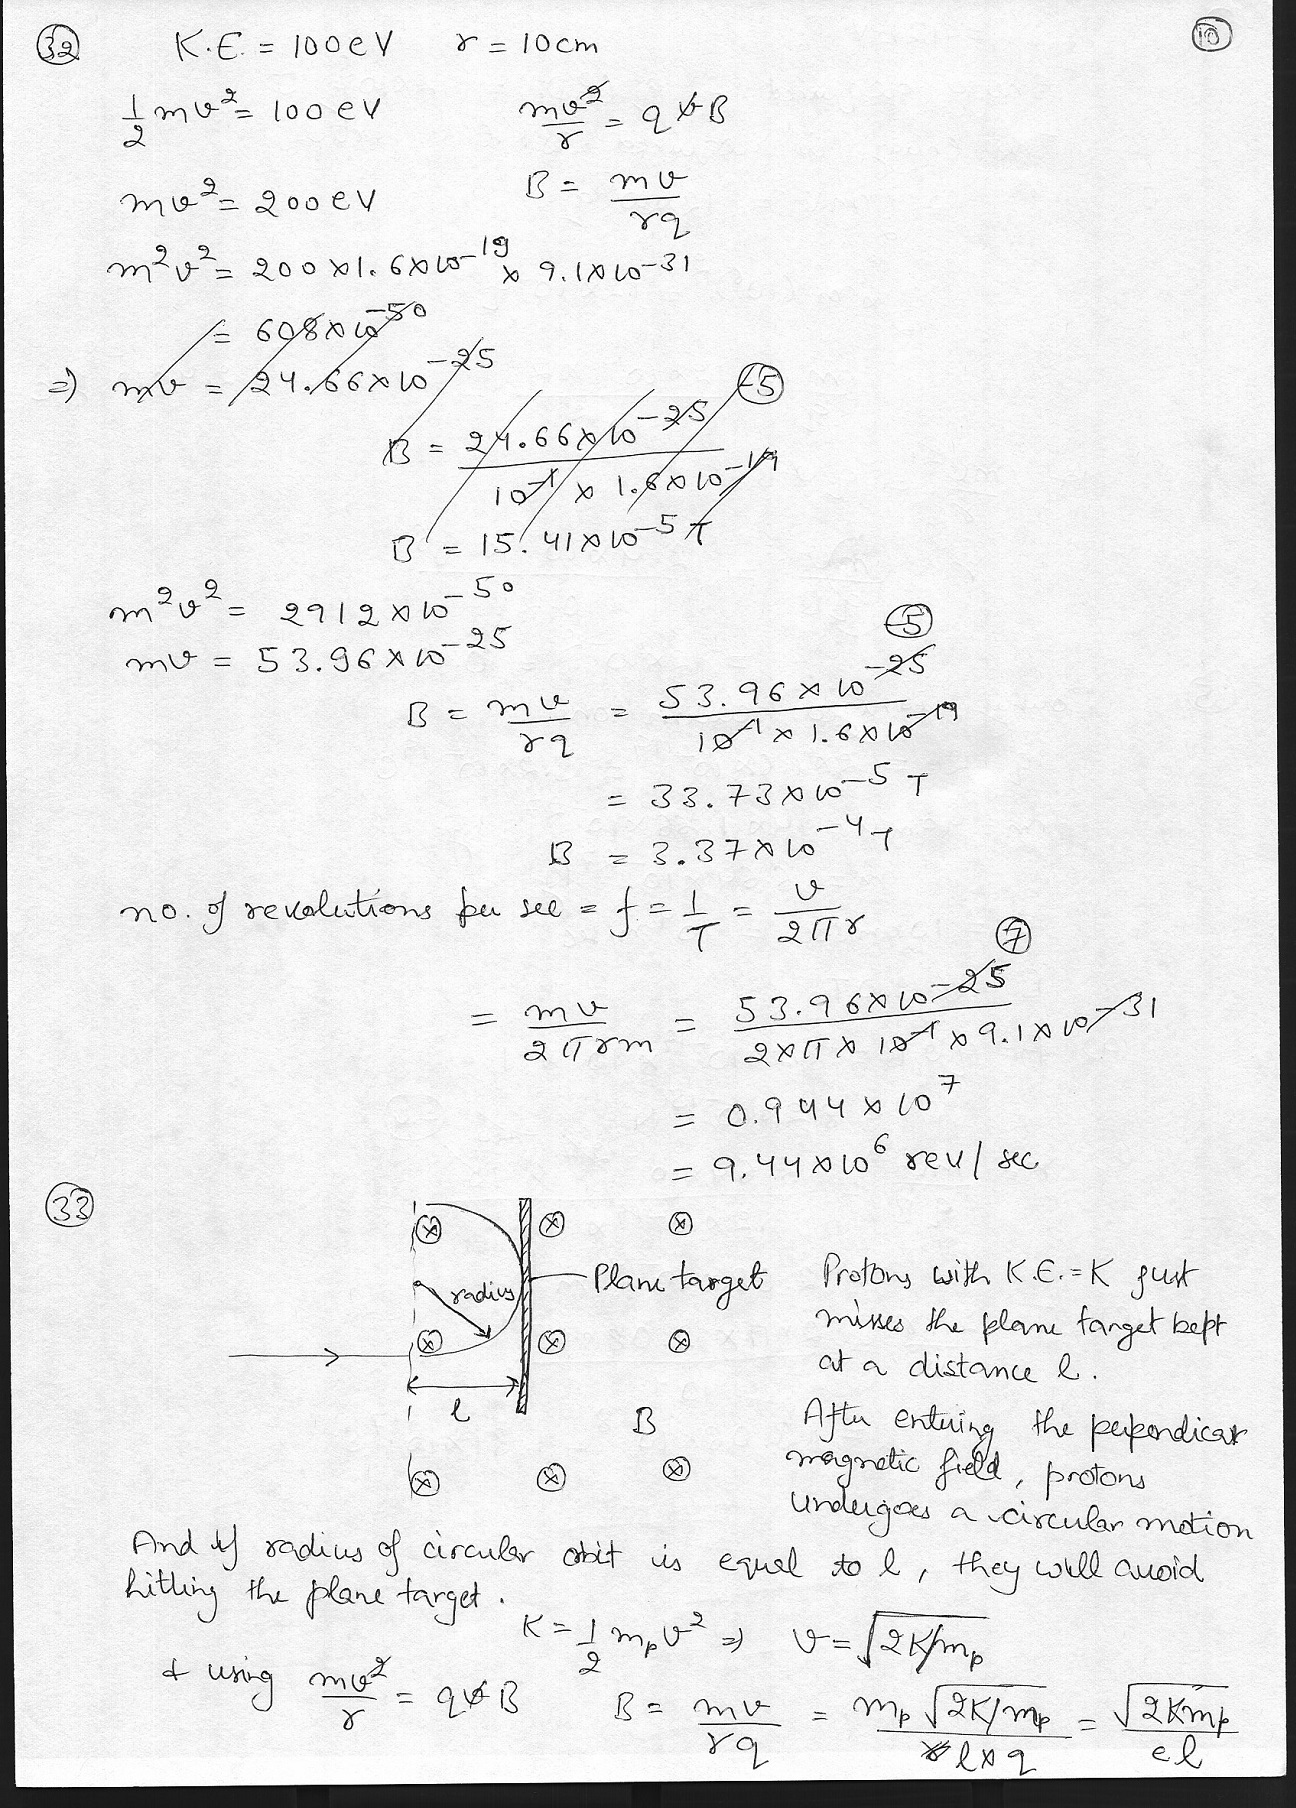 32 K.E. = 100eV r = 10cm 10
1/2 mv² = 100 eV mv²/r = qvB
mv² = 200eV B = mv/rq
m²v² = 200×1.6×10⁻¹⁹ × 9.1×10⁻³¹
= 608×10⁻⁵⁰
⇒) mv = 24.66×10⁻²⁵
B = 24.66×10⁻²⁵/10⁻¹ × 1.6×10⁻¹⁹ -5
B = 15.41×10⁻⁵ T
m²v² = 2912×10⁻⁵⁰
mv = 53.96×10⁻²⁵
B = mv/rq = 53.96×10⁻²⁵/10⁻¹ × 1.6×10⁻¹⁹ -5
= 33.73×10⁻⁵ T
B = 3.37×10⁻⁴ T
no. of revolutions per sec = f = 1/T = v/2πr
= mv/2πrm = 53.96×10⁻²⁵/2×π×10⁻¹×9.1×10⁻³¹ 7
= 0.944×10⁷
= 9.44×10⁶ rev/sec
33
radius
Plane target
l
B
Protons with K.E.=K just
misses the plane target kept
at a distance l.
After entering the perpendicar
magnetic field, protons
undergoes a circular motion
And if radius of circular orbit is equal to l, they will avoid
hitting the plane target.
K = 1/2 mₚv² ⇒ v = √2K/mₚ
& using mv²/r = qvB B = mv/rq = mₚ√2K/mₚ/l×q = √2Kmₚ/el